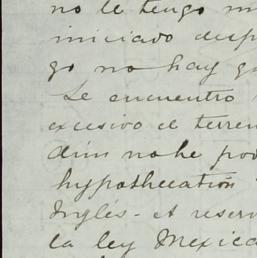 no le tengo
iniciado desp
go no hay
Le encuentro
excesivo el terren
dim nohe pod
hypothecation
Inglés - A reserv
la ley Mexica